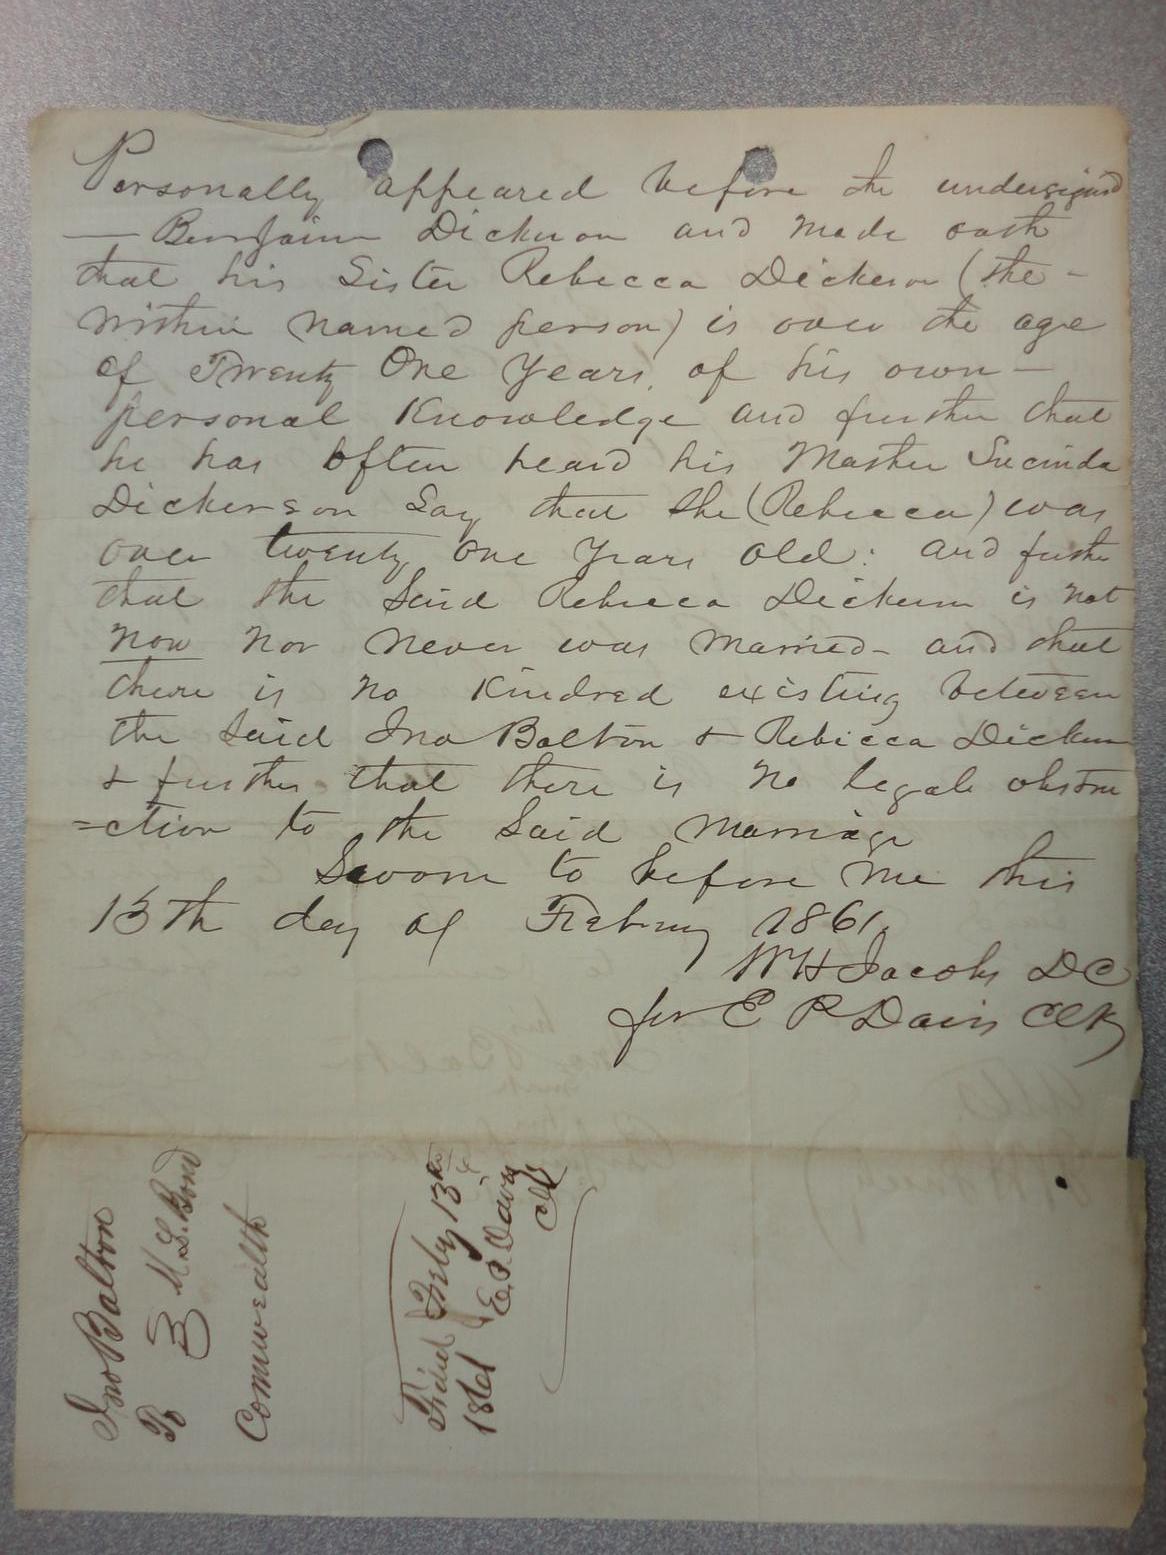 Personally appeared before the undersigned
— Benjaim Dickerson and made oath
that his Sister Rebecca Dickerson (the -
within named person) is over the age
of Twenty One Years, of his own —
personal Knowledge and further that
he has often heard his Master Lucinda
Dickerson Say that She (Rebecca) was
over twenty one Years old: and further
that the Said Rebecca Dickerson is not
now nor never was married - and that
there is no Kindred existing between
the Said Jno Bolton & Rebecca Dickerson
& further that there is no legal obstru
=ction to the Said marriage
Sworn to before me this
13th day of Februy 1861.
W H Jacobs DC
for E P Davis Clk
Jno Bolton
To M L Bond
Comwealth
Filed Feby 13th
1861 E. P. Davis
Clk